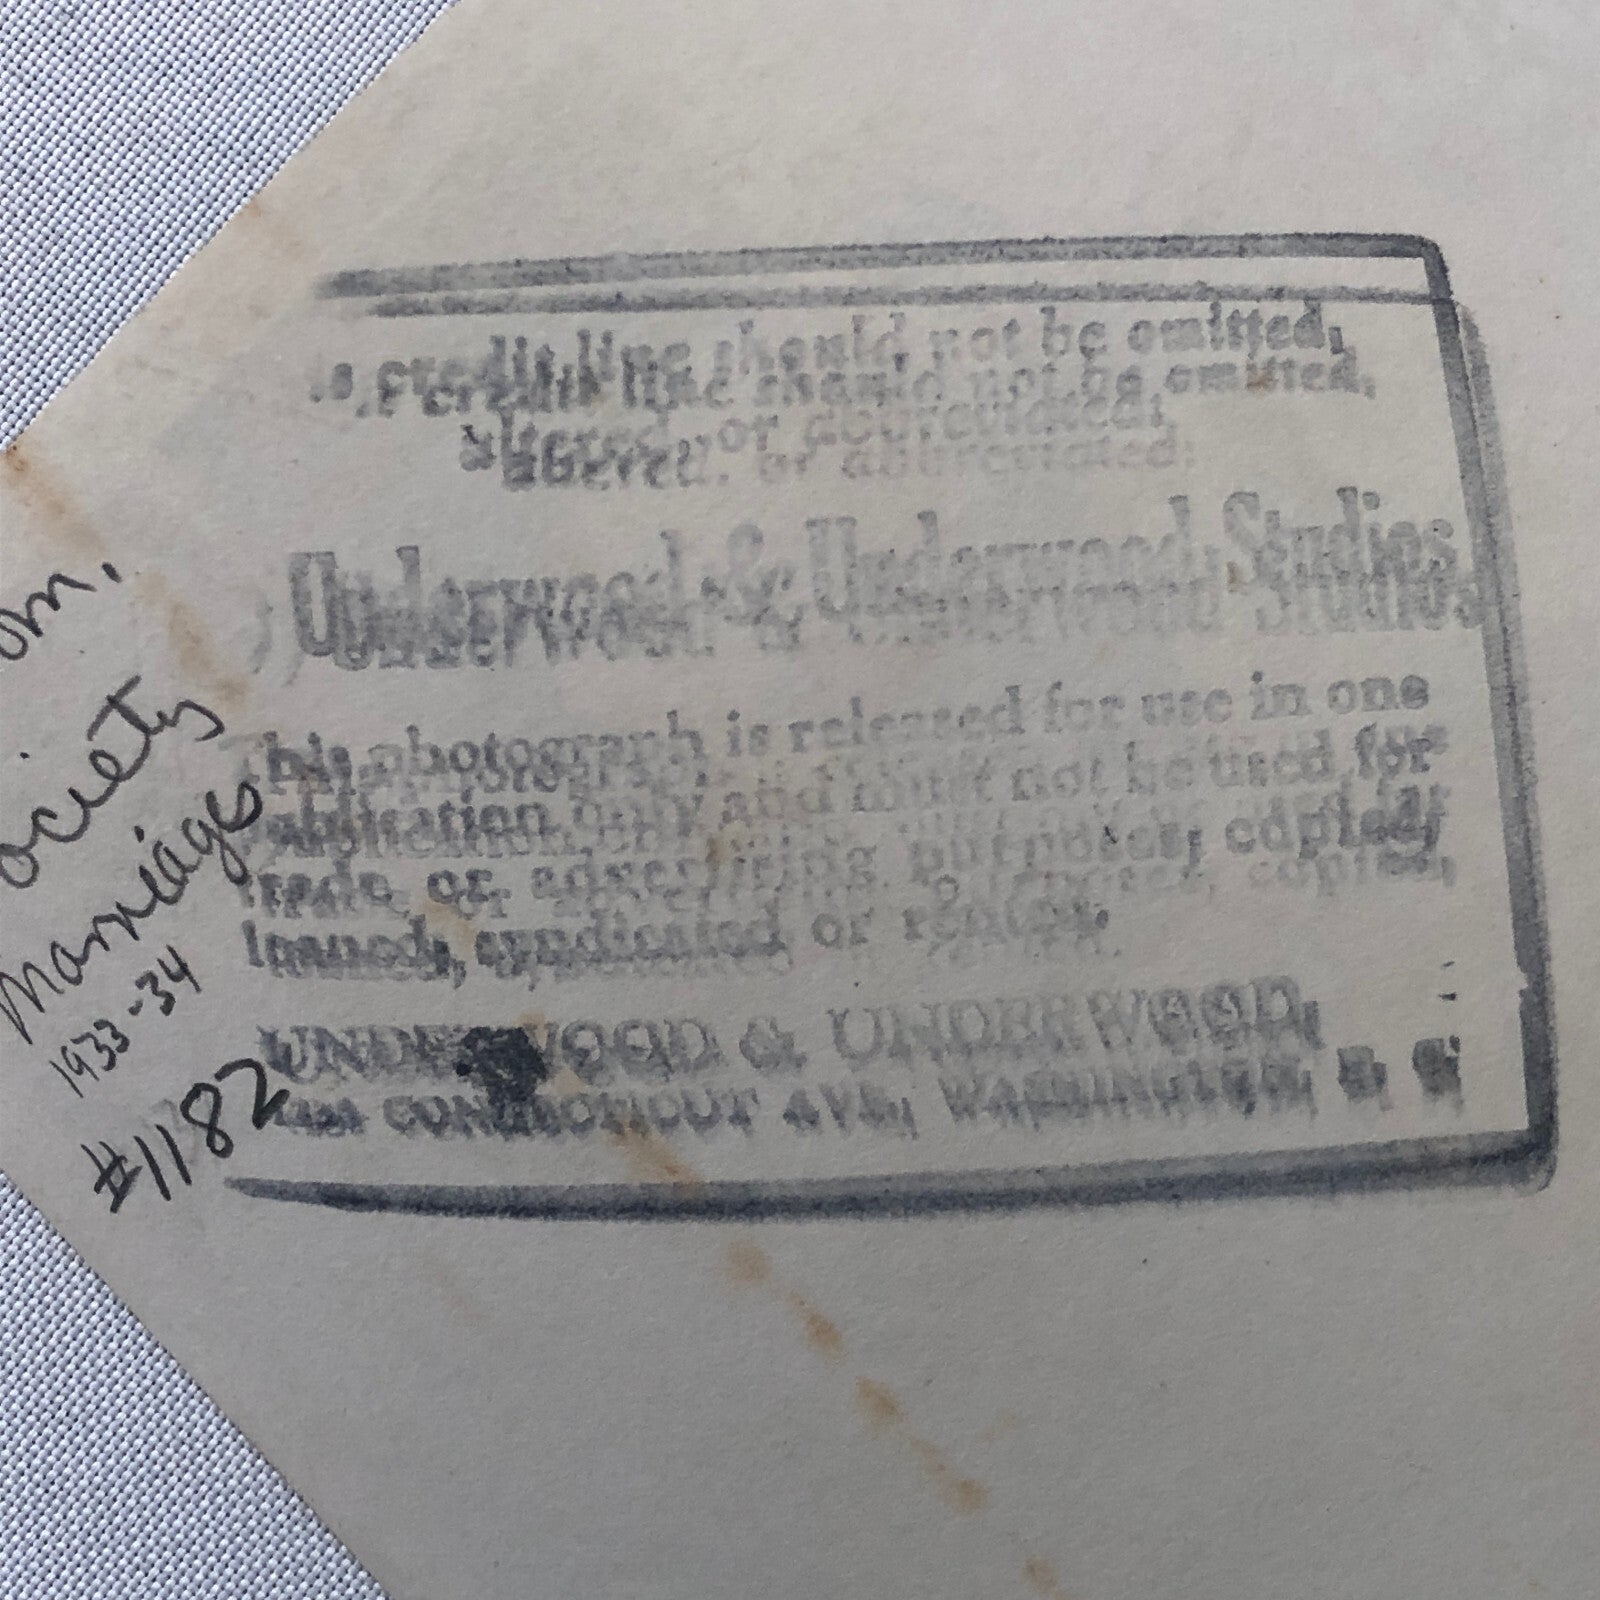 om.
ociety
Marriages
1933-34
#1182
credit line should not be omitted,
altered, or abbreviated:
Underwood & Underwood Studios
This photograph is released for use in one
publication only and must not be used for
trade or advertising purposes, copied,
loaned, syndicated or
UNDERWOOD & UNDERWOOD,
CONNECTICUT AVE., WASHINGTON,